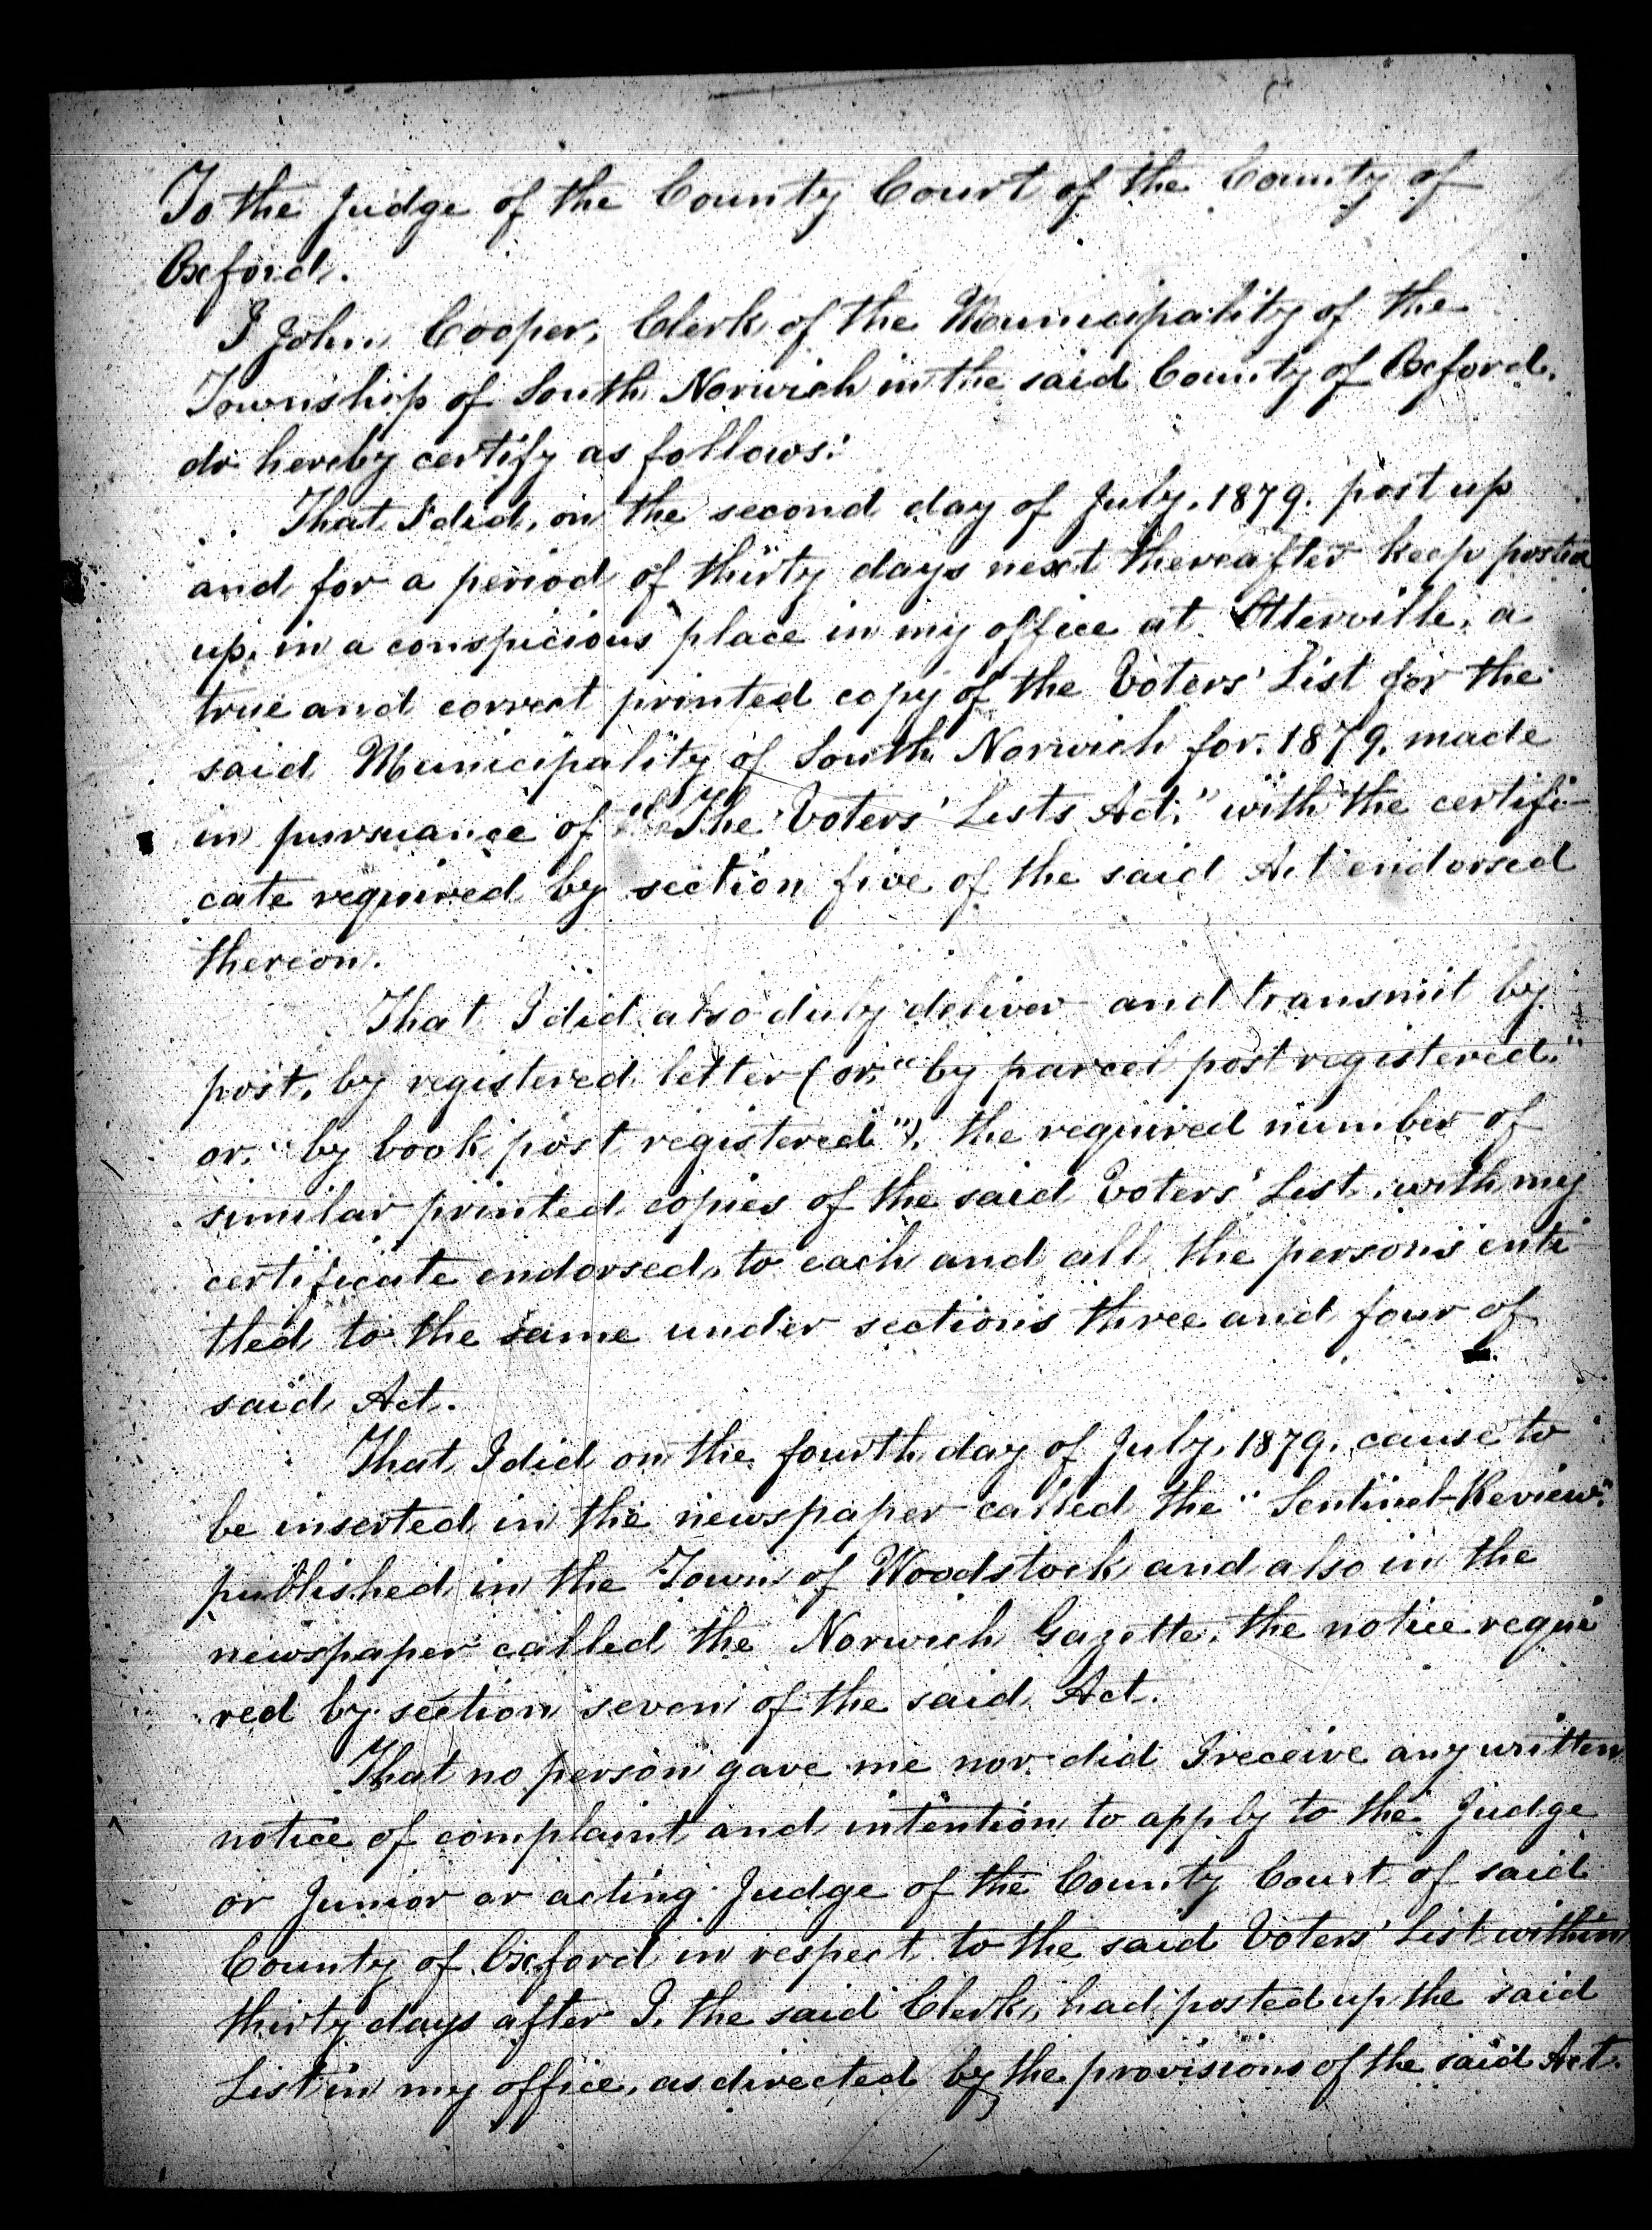 To the Judge of the County Court of the County of
Oxford.
I John Cooper, Clerk of the Municipality of the
Township of South Norwich in the said County of Oxford,
do hereby certify as follows:
That I did, on the second day of July, 1879. post up
and for a period of thirty days next thereafter keep posted
up, in a conspicious place in my office at Otterville, a
true and correct printed copy of the Voters' List for the
said Municipality of South Norwich for 1879, made
in pursuance of "The Voters' Lists Act," with the certifi-
cate required by section five of the said Act endorsed
thereon.
That I did also duly deliver and transmit by
post, by registered letter (or, "by parcel post registered."
or, "by book post registered"), the required number of
similar printed copies of the said Voters' List, with my
certificate endorsed, to each and all the persons enti
tled to the same under sections three and four of
said Act.
That I did on the fourth day of July, 1879, cause to
be inserted in the newspaper called the "Sentinel-Review"
published in the Town of Woodstock and also in the
newspaper called the Norwich Gazette, the notice requi
red by section seven of the said Act.
That no person gave me nor did I receive any written
notice of complaint and intention to apply to the Judge
or Junior or acting Judge of the County Court of said
County of Oxford in respect to the said Voters' List within
thirty days after I, the said Clerk, had posted up the said
List in my office, as directed by the provisions of the said Act.